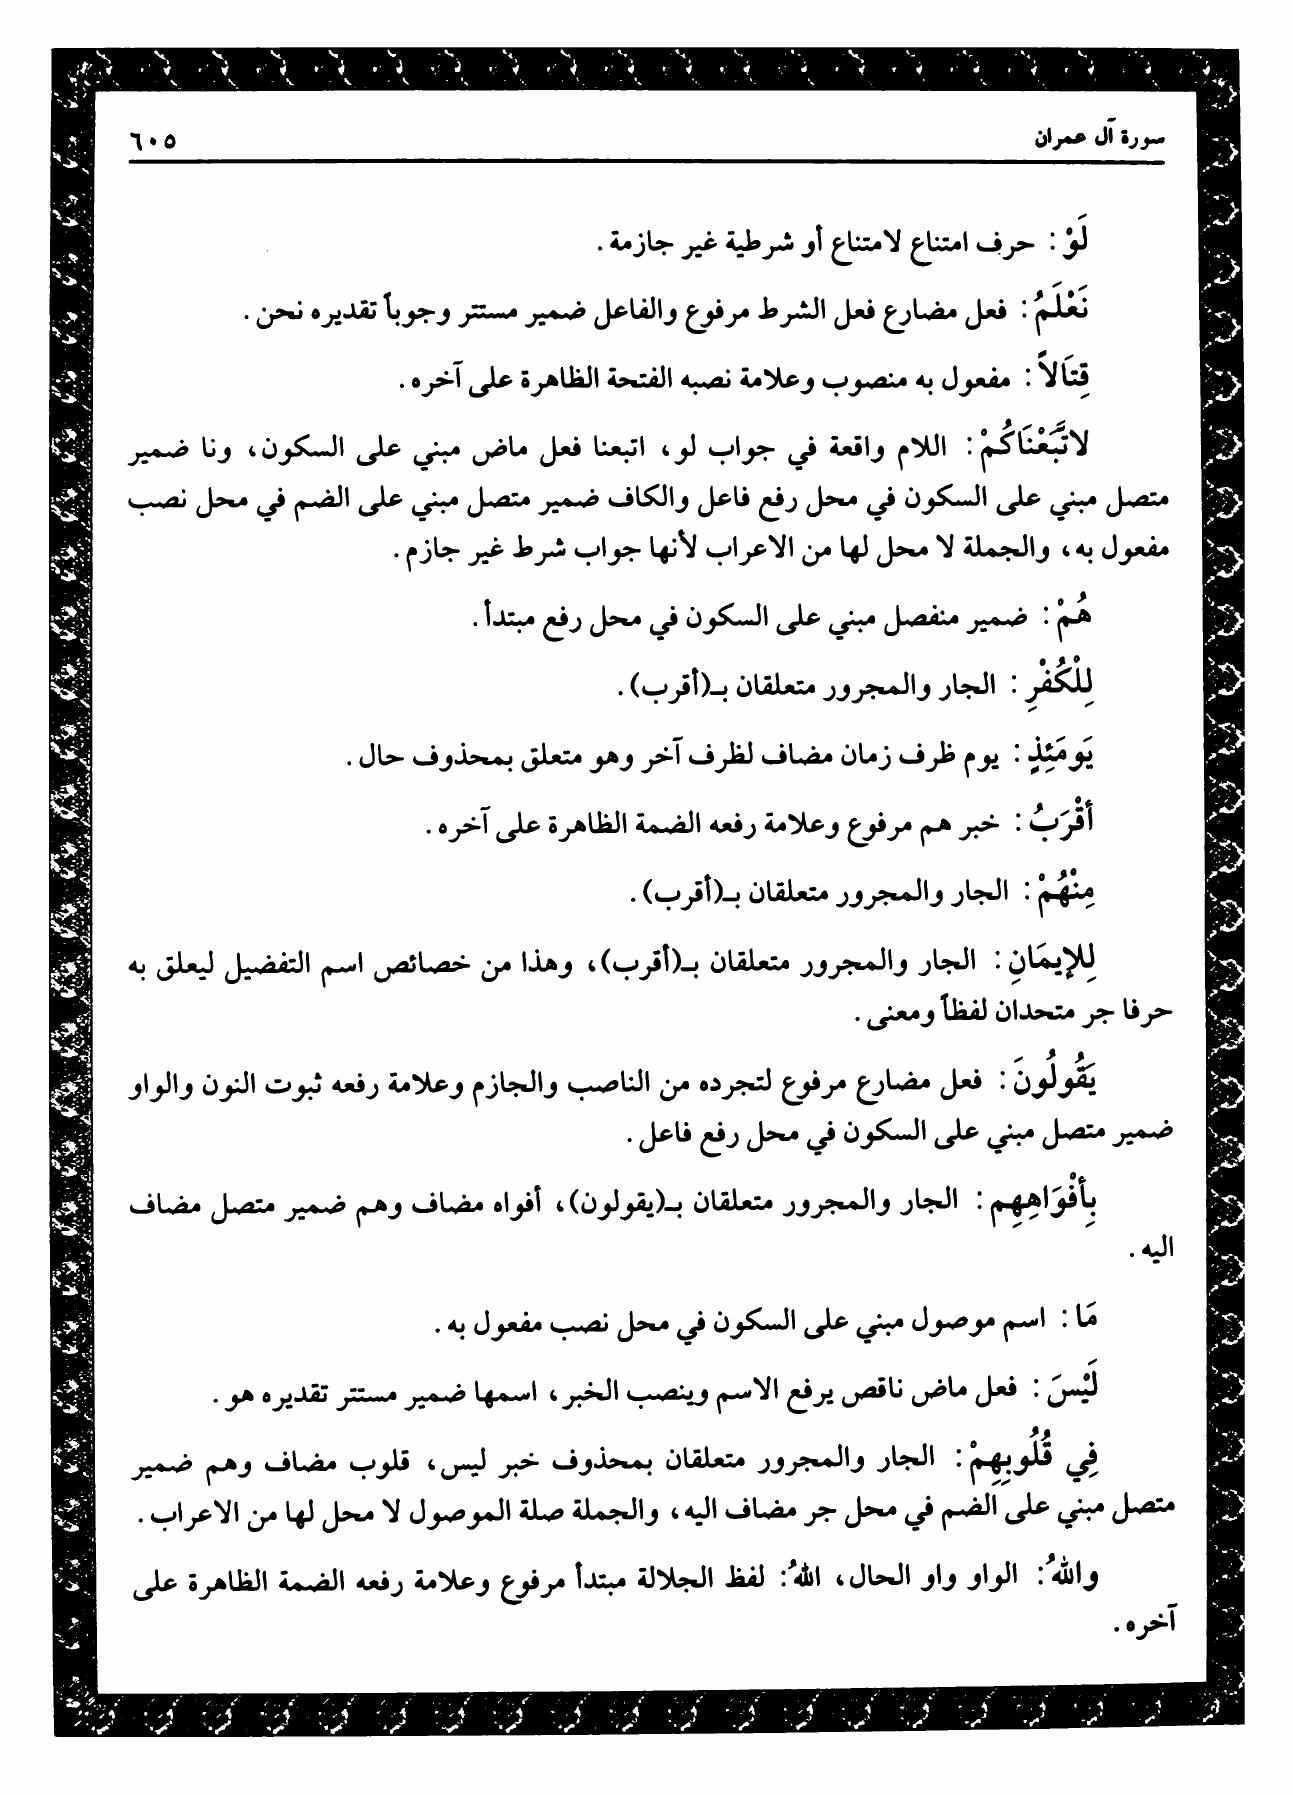 سورة آل عمران
٦٠٥
لَوْ: حرف امتناع لامتناع أو شرطية غير جازمة.
نَعْلَمُ: فعل مضارع فعل الشرط مرفوع والفاعل ضمير مستتر وجوباً تقديره نحن.
قِتَالاً: مفعول به منصوب وعلامة نصبه الفتحة الظاهرة على آخره.
لاتَّبَعْنَاكُمْ: اللام واقعة في جواب لو، اتبعنا فعل ماض مبني على السكون، ونا ضمير
متصل مبني على السكون في محل رفع فاعل والكاف ضمير متصل مبني على الضم في محل نصب
مفعول به، والجملة لا محل لها من الاعراب لأنها جواب شرط غير جازم.
هُمْ: ضمير منفصل مبني على السكون في محل رفع مبتدأ.
لِلْكُفْرِ: الجار والمجرور متعلقان بـ(أقرب).
يَومَئِذٍ: يوم ظرف زمان مضاف لظرف آخر وهو متعلق بمحذوف حال.
أقْرَبُ: خبر هم مرفوع وعلامة رفعه الضمة الظاهرة على آخره.
مِنْهُمْ: الجار والمجرور متعلقان بـ(أقرب).
لِلإيمَانِ: الجار والمجرور متعلقان بـ(أقرب)، وهذا من خصائص اسم التفضيل ليعلق به
حرفا جر متحدان لفظاً ومعنى.
يَقُولُونَ: فعل مضارع مرفوع لتجرده من الناصب والجازم وعلامة رفعه ثبوت النون والواو
ضمير متصل مبني على السكون في محل رفع فاعل.
بِأفْوَاهِهِم: الجار والمجرور متعلقان بـ(يقولون)، أفواه مضاف وهم ضمير متصل مضاف
اليه.
مَا: اسم موصول مبني على السكون في محل نصب مفعول به.
لَيْسَ: فعل ماض ناقص يرفع الاسم وينصب الخبر، اسمها ضمير مستتر تقديره هو.
فِي قُلُوبِهِمْ: الجار والمجرور متعلقان بمحذوف خبر ليس، قلوب مضاف وهم ضمير
متصل مبني على الضم في محل جر مضاف اليه، والجملة صلة الموصول لا محل لها من الاعراب.
واللهُ: الواو واو الحال، اللهُ: لفظ الجلالة مبتدأ مرفوع وعلامة رفعه الضمة الظاهرة على
آخره.